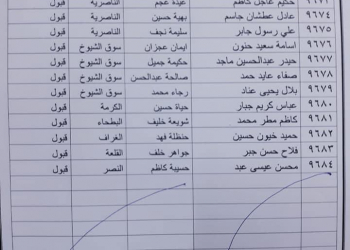 عادل عطشان جاسم بهية حسين الناصرية قبول ٩٦٧٤
علي رسول جابر سليمة نجف الناصرية قبول ٩٦٧٥
اسامة سعيد حنون ايمان عجزان سوق الشيوخ قبول ٩٦٧٦
حيدر عبدالحسين ماجد حكيمة جميل سوق الشيوخ قبول ٩٦٧٧
صفاء عايد حمد صالحة عبدالحسن سوق الشيوخ قبول ٩٦٧٨
بلال يحيى عناد رجاء محمد سوق الشيوخ قبول ٩٦٧٩
عباس كريم جبار حياة حسين الكرمة قبول ٩٦٨٠
كاظم مطر محمد شويعة خليف البطحاء قبول ٩٦٨١
حميد خيون حسين حنظلة فهد الغراف قبول ٩٦٨٢
فلاح حسن جبر جواهر خلف القلعة قبول ٩٦٨٣
محسن عيسى عبد حسيبة كاظم النصر قبول ٩٦٨٤